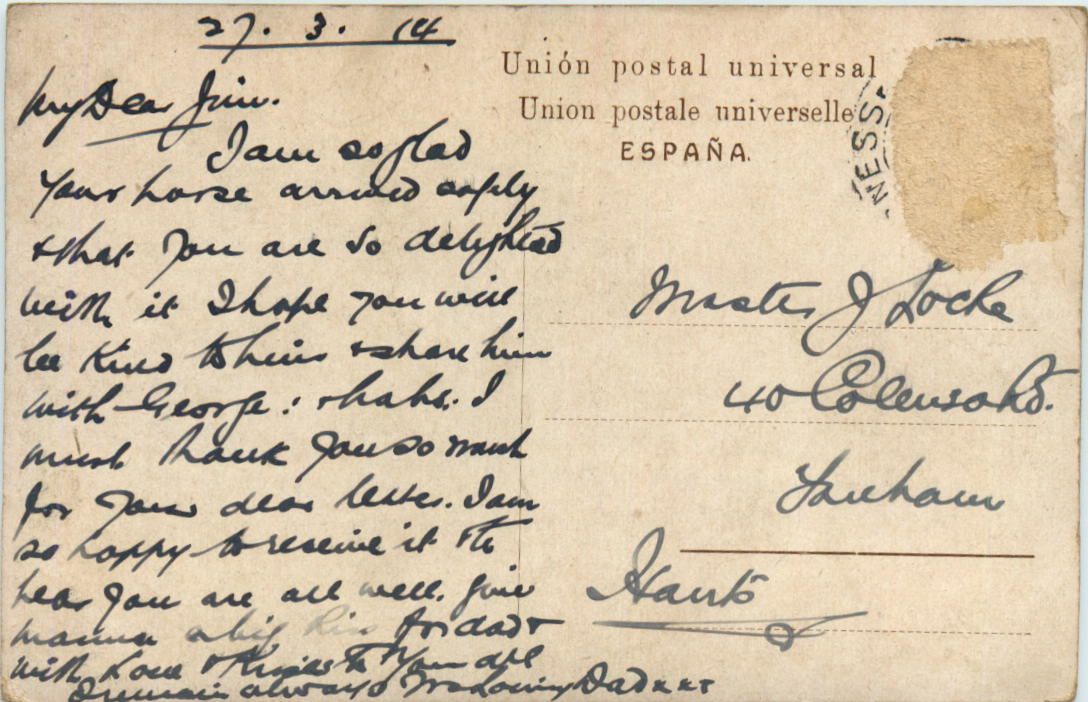 27. 3. 14
My Dear Jim.
I am so glad
Your horse arrived safely
& that you are so delighted
with it I hope you will
be Kind to him & share him
with George: I
must thank you so much
for your dear letter. I am
so happy to receive it & to
hear you are all well. give
mamma a big kiss for dad &
with Love & Kisses to You all
I remain always Loving Dad xxx
Unión postal universal
Union postale universelle
ESPAÑA.
NESS
Master J Locke
40 Colenso Rd.
Fareham
Hants